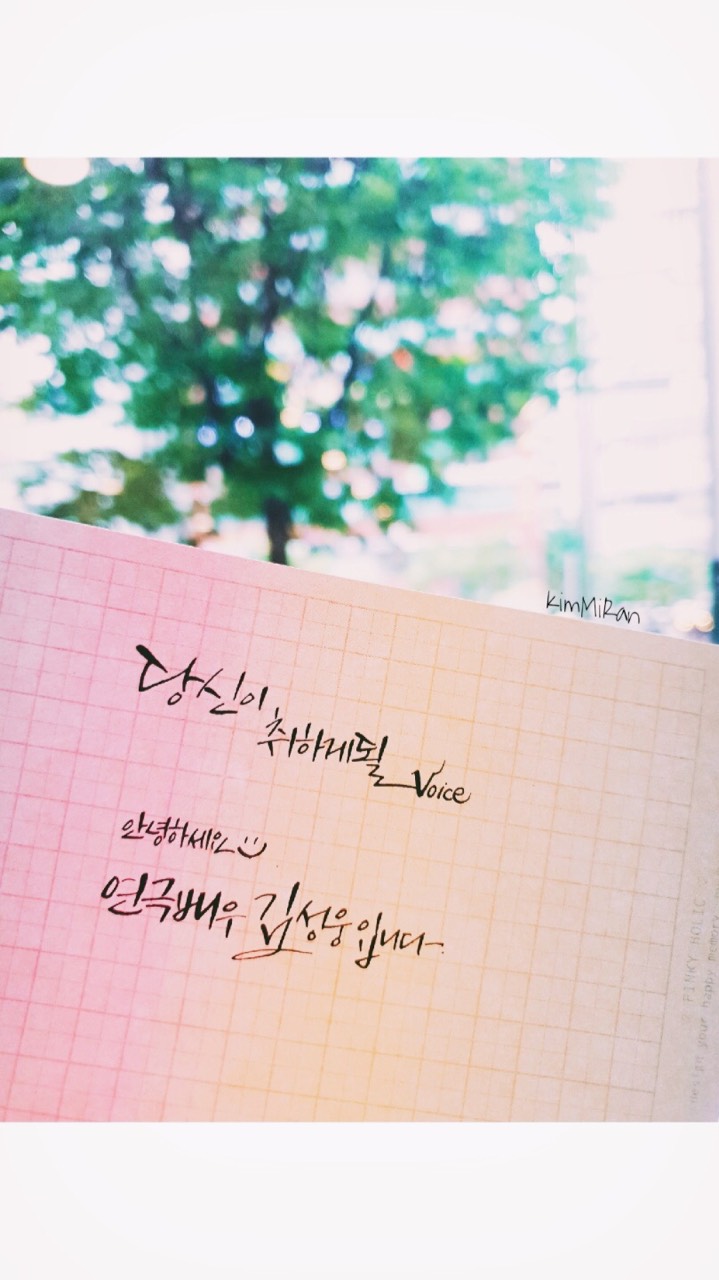 KimMiRan
당신이
취하게될
Voice
안녕하세요
연극배우 김성웅입니다.
PINKY HOLIC
Design your happy memory